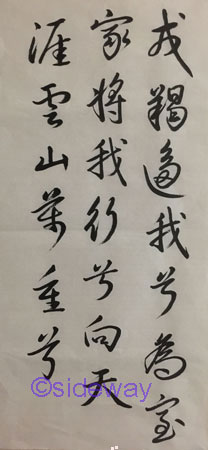 戎羯逼我兮為室
家將我行兮向天
涯雲山萬重兮
©sideway